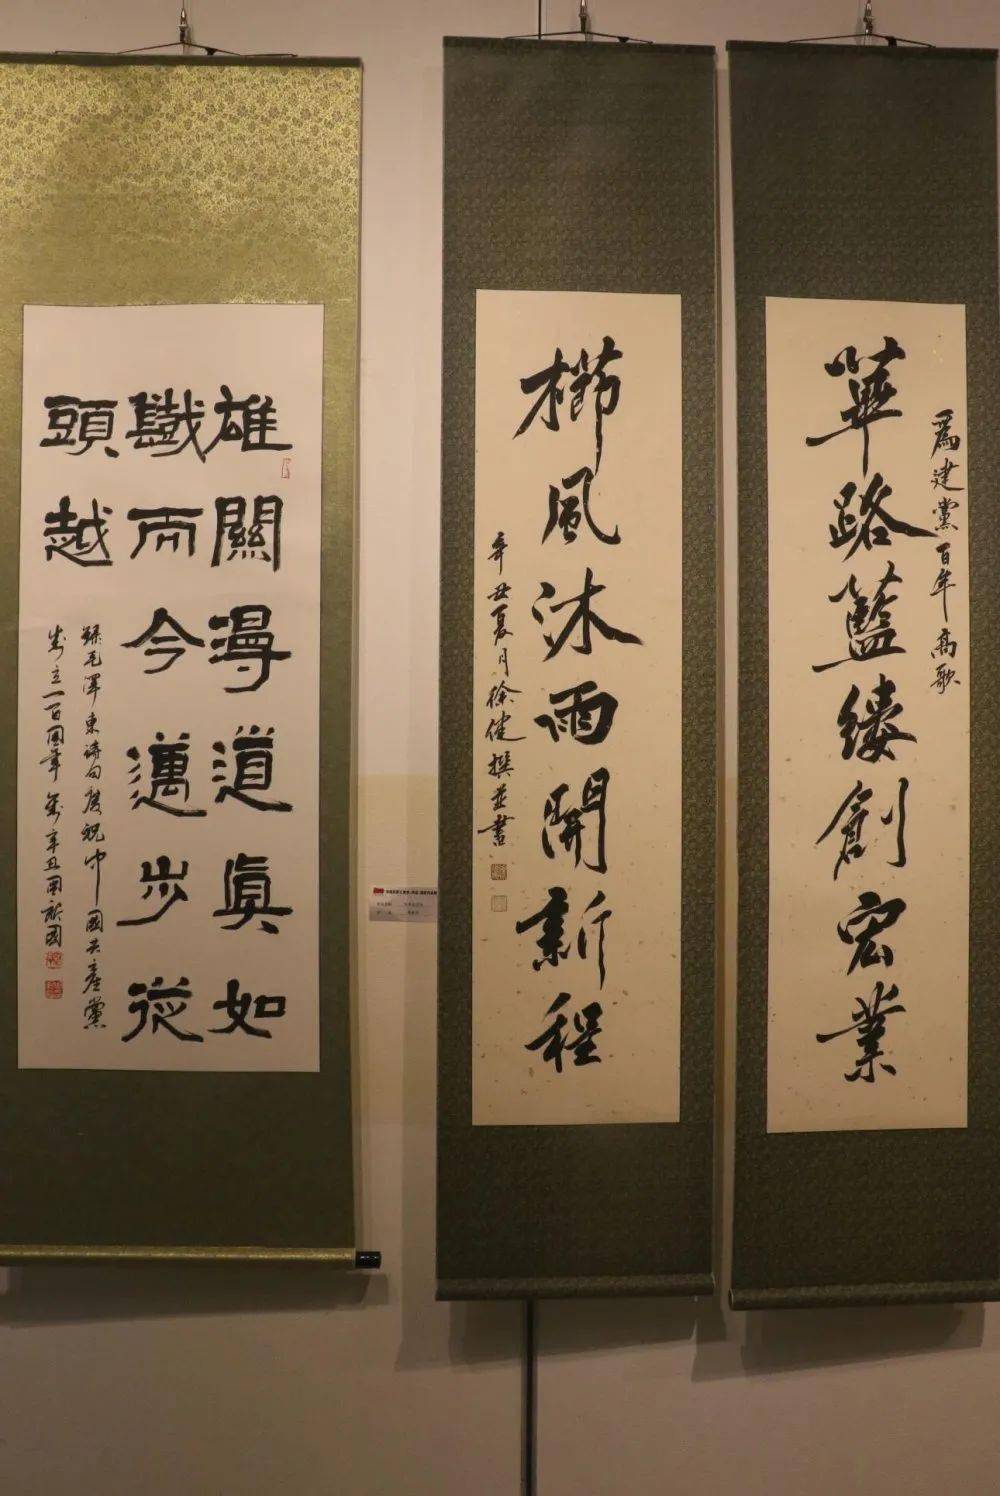 為建黨百年高歌
篳路籃縷創宏業
櫛風沐雨開新程
辛丑夏月徐健撰並書
雄關漫道真如
鐵而今邁步從
頭越
錄毛澤東詩句慶祝中國共產黨
成立一百周年歲辛丑周